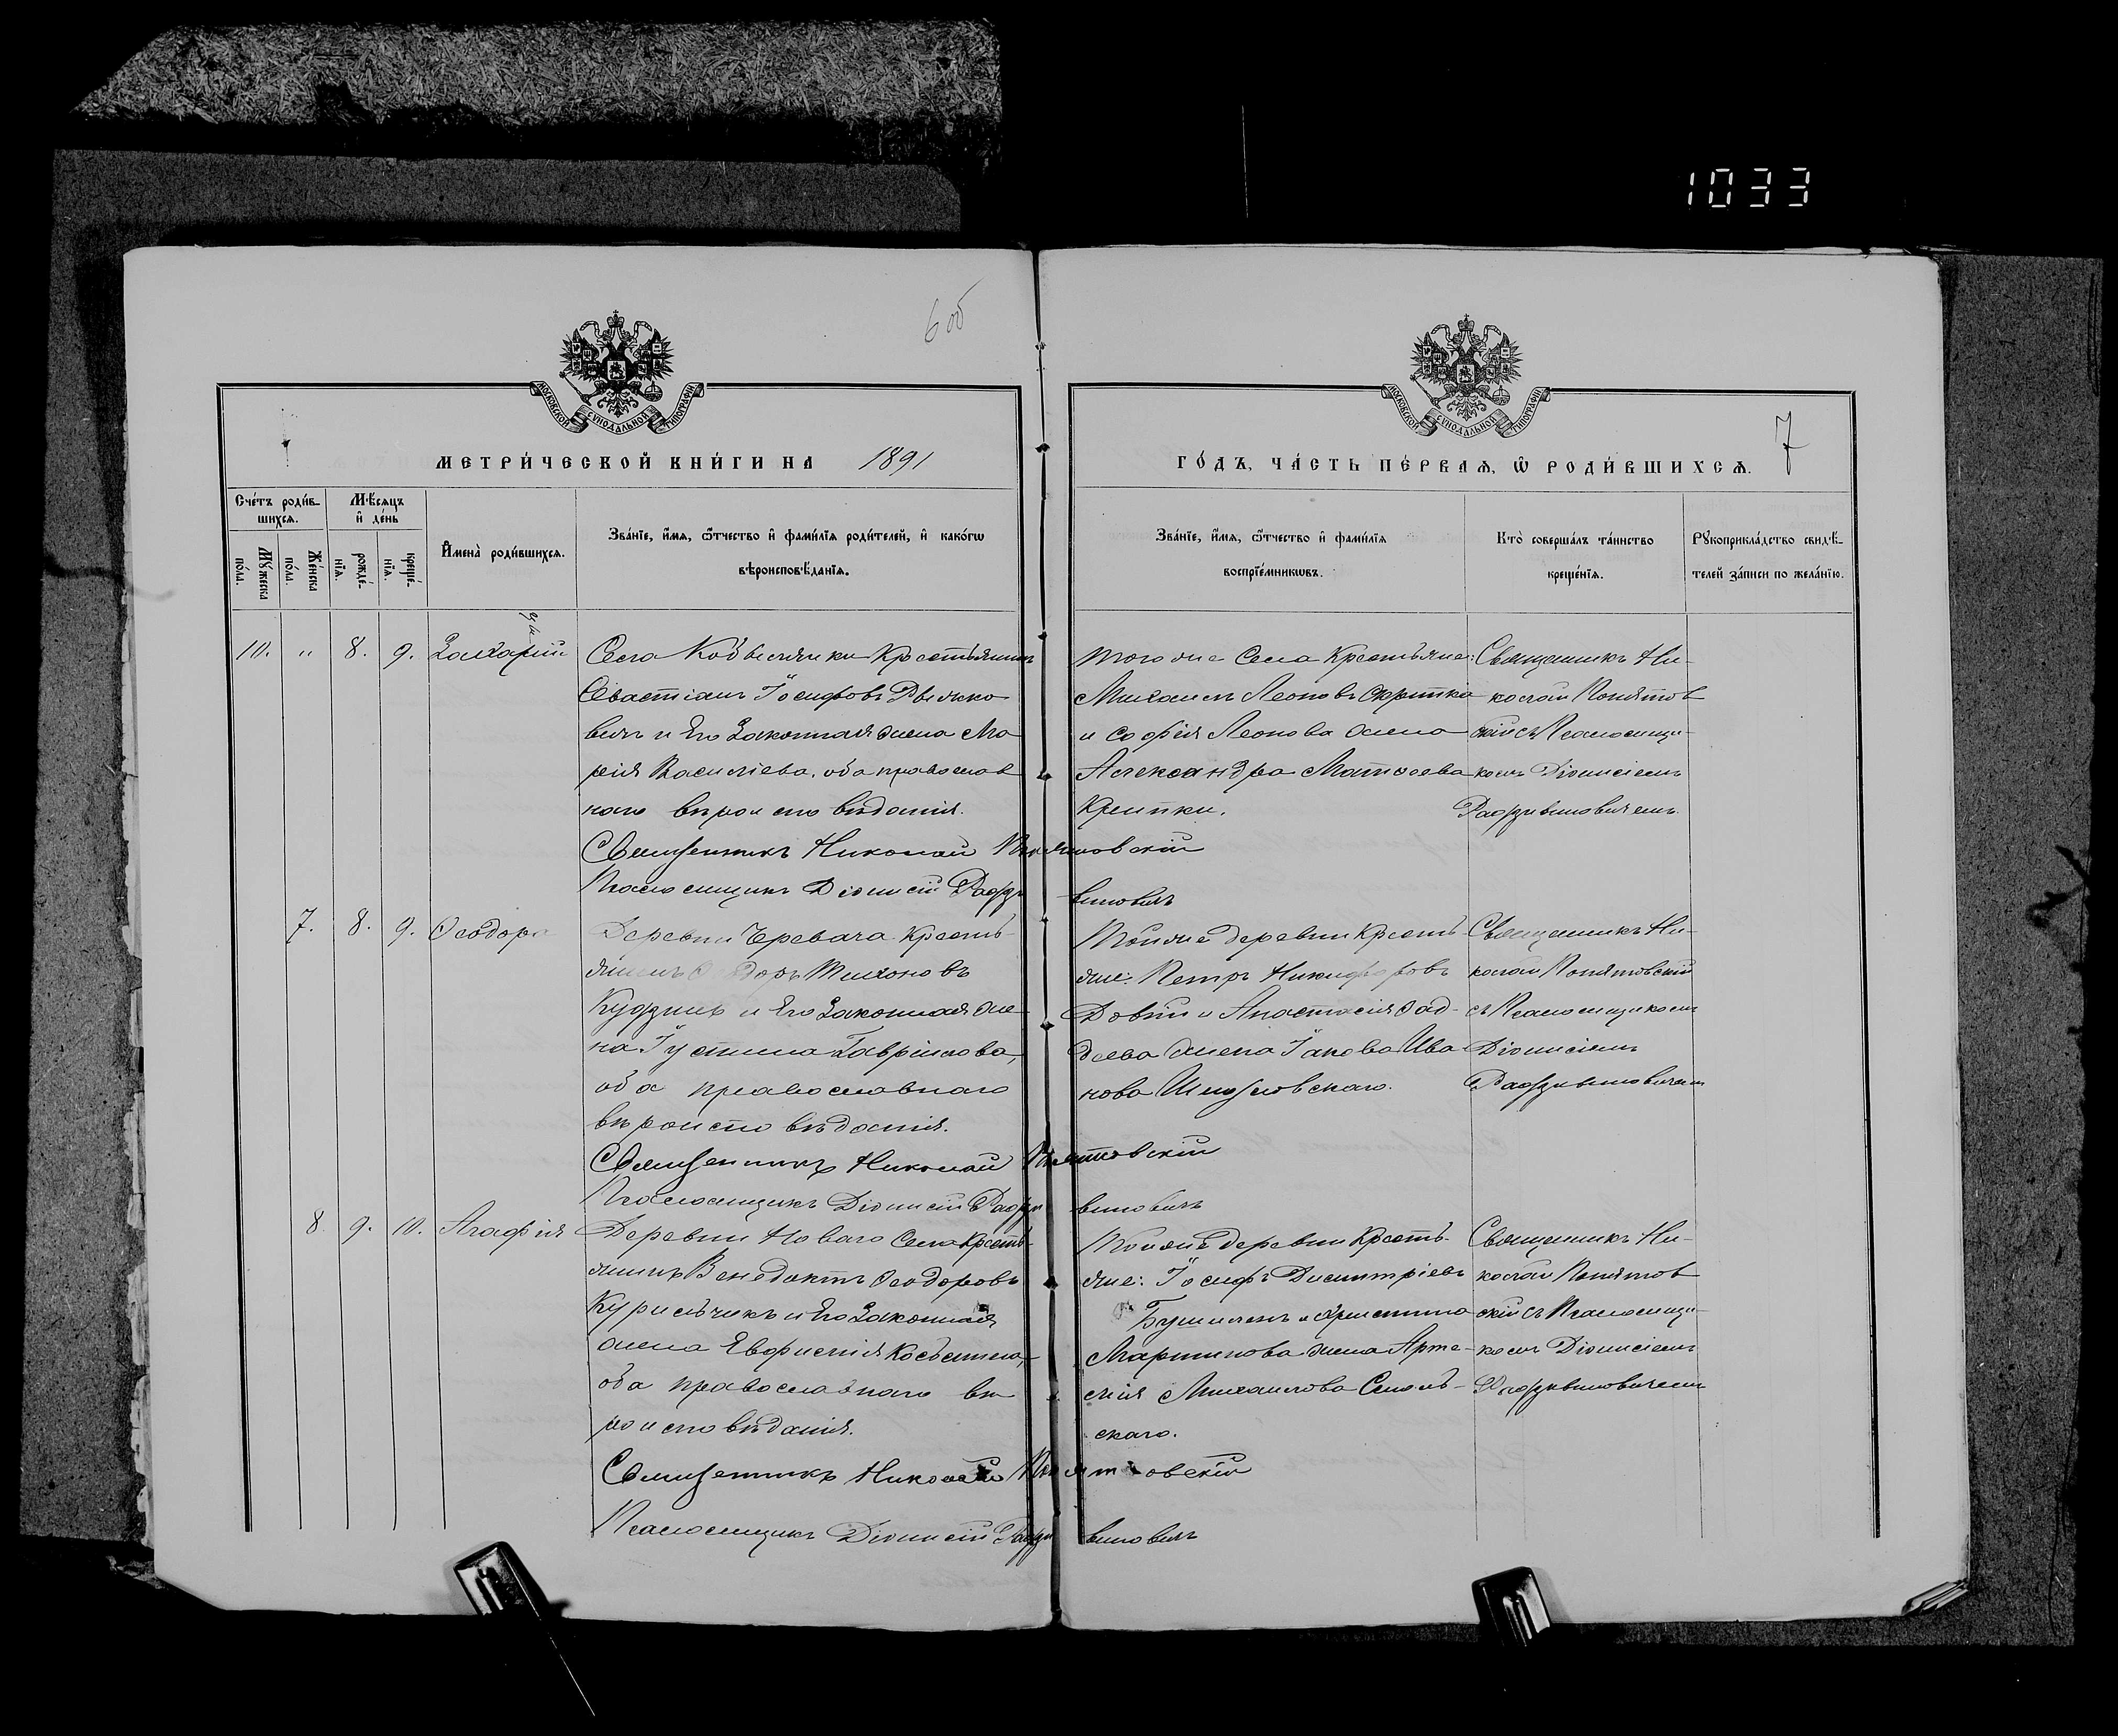 1033
6 об
МОСКОВСКОЙ СѴНОДАЛЬНОЙ ТИПОГРАФІИ
МОСКОВСКОЙ СѴНОДАЛЬНОЙ ТИПОГРАФІИ
МЕТРИ́ЧЕСКОЙ КНИ́ГИ НА 1891
ГО́ДЪ, ЧА́СТЬ ПЕ́РВАѦ, Ѡ҆ РОДИ́ВШИХСѦ. 7
Сче́тъ роди́в-
шихсѧ.
Мѣ́сѧцъ
и҆ де́нь
Мꙋ́жеска
по́ла.
Же́нска
по́ла.
рожде́-
нїѧ.
креще́-
нїѧ.
И҆мена̀ роди́вшихсѧ.
Зва́нїе, и҆́мѧ, ѻ҆́тчество и҆ фами́лїѧ роди́телей, и҆ како́гѡ
вѣроисповѣ́данїѧ.
Зва́нїе, и҆́мѧ, ѻ҆́тчество и҆ фами́лїѧ
воспрїе́мникѡвъ.
Кто̀ соверша́лъ та́инство
креще́нїѧ.
Рꙋкоприкла́дство свидѣ́-
телей за́писи по жела́нїю.
10. " 8. 9. Захарій
Села Крестьянинъ
Севастіанъ Іосифовъ
и Его Законная жена Ма
рія Василіева, оба православ
наго вѣроисповѣданія.
Священникъ Николай Понятовскій
Псаломщикъ Діонисій Радзивиновичъ
того же Села Крестьяне:
Михаилъ Леоновъ Скрипка
и Софія Леонова жена
Александра Матѳеева
Крипки.
Священникъ Ни-
колай Понятов
скій съ Псаломщи-
комъ Діонисіемъ
Радзивиновичемъ.
7. 8. 9. Ѳеодора
Деревни Черевача Крестъ-
янинъ Ѳеодоръ Тихоновъ
и Его Законная же-
на Іустина Гаврилова,
оба православнаго
вѣроисповѣданія.
Священникъ Николай Понятовскій
Псаломщикъ Діонисій Радзивиновичъ
Тойже деревни Крестъ-
яне: Петръ Никифоровъ
Довгій и Анастасія Ѳад-
деева жена Іакова Ива
нова
Священникъ Ни-
колай Понятовскій
съ Псаломщикомъ
Діонисіемъ
Радзивиновичемъ
8. 9. 10. Агафія
Деревни Новаго Села Крестъ-
янинъ Венедиктъ Ѳеодоровъ
Курильчикъ и Его Законная
жена Евфимія Косьмина,
оба православнаго вѣ
роисповѣданія.
Священникъ Николай Понятовскій
Псаломщикъ Діонисій Радзивиновичъ
Тойже деревни Крестъ-
яне: Іосифъ Димитріевъ
и Христина
Мартинова жена Арте-
мія Михаилова
скаго.
Священникъ Ни-
колай Понятов
скій съ Псаломщи-
комъ Діонисіемъ
Радзивиновичемъ